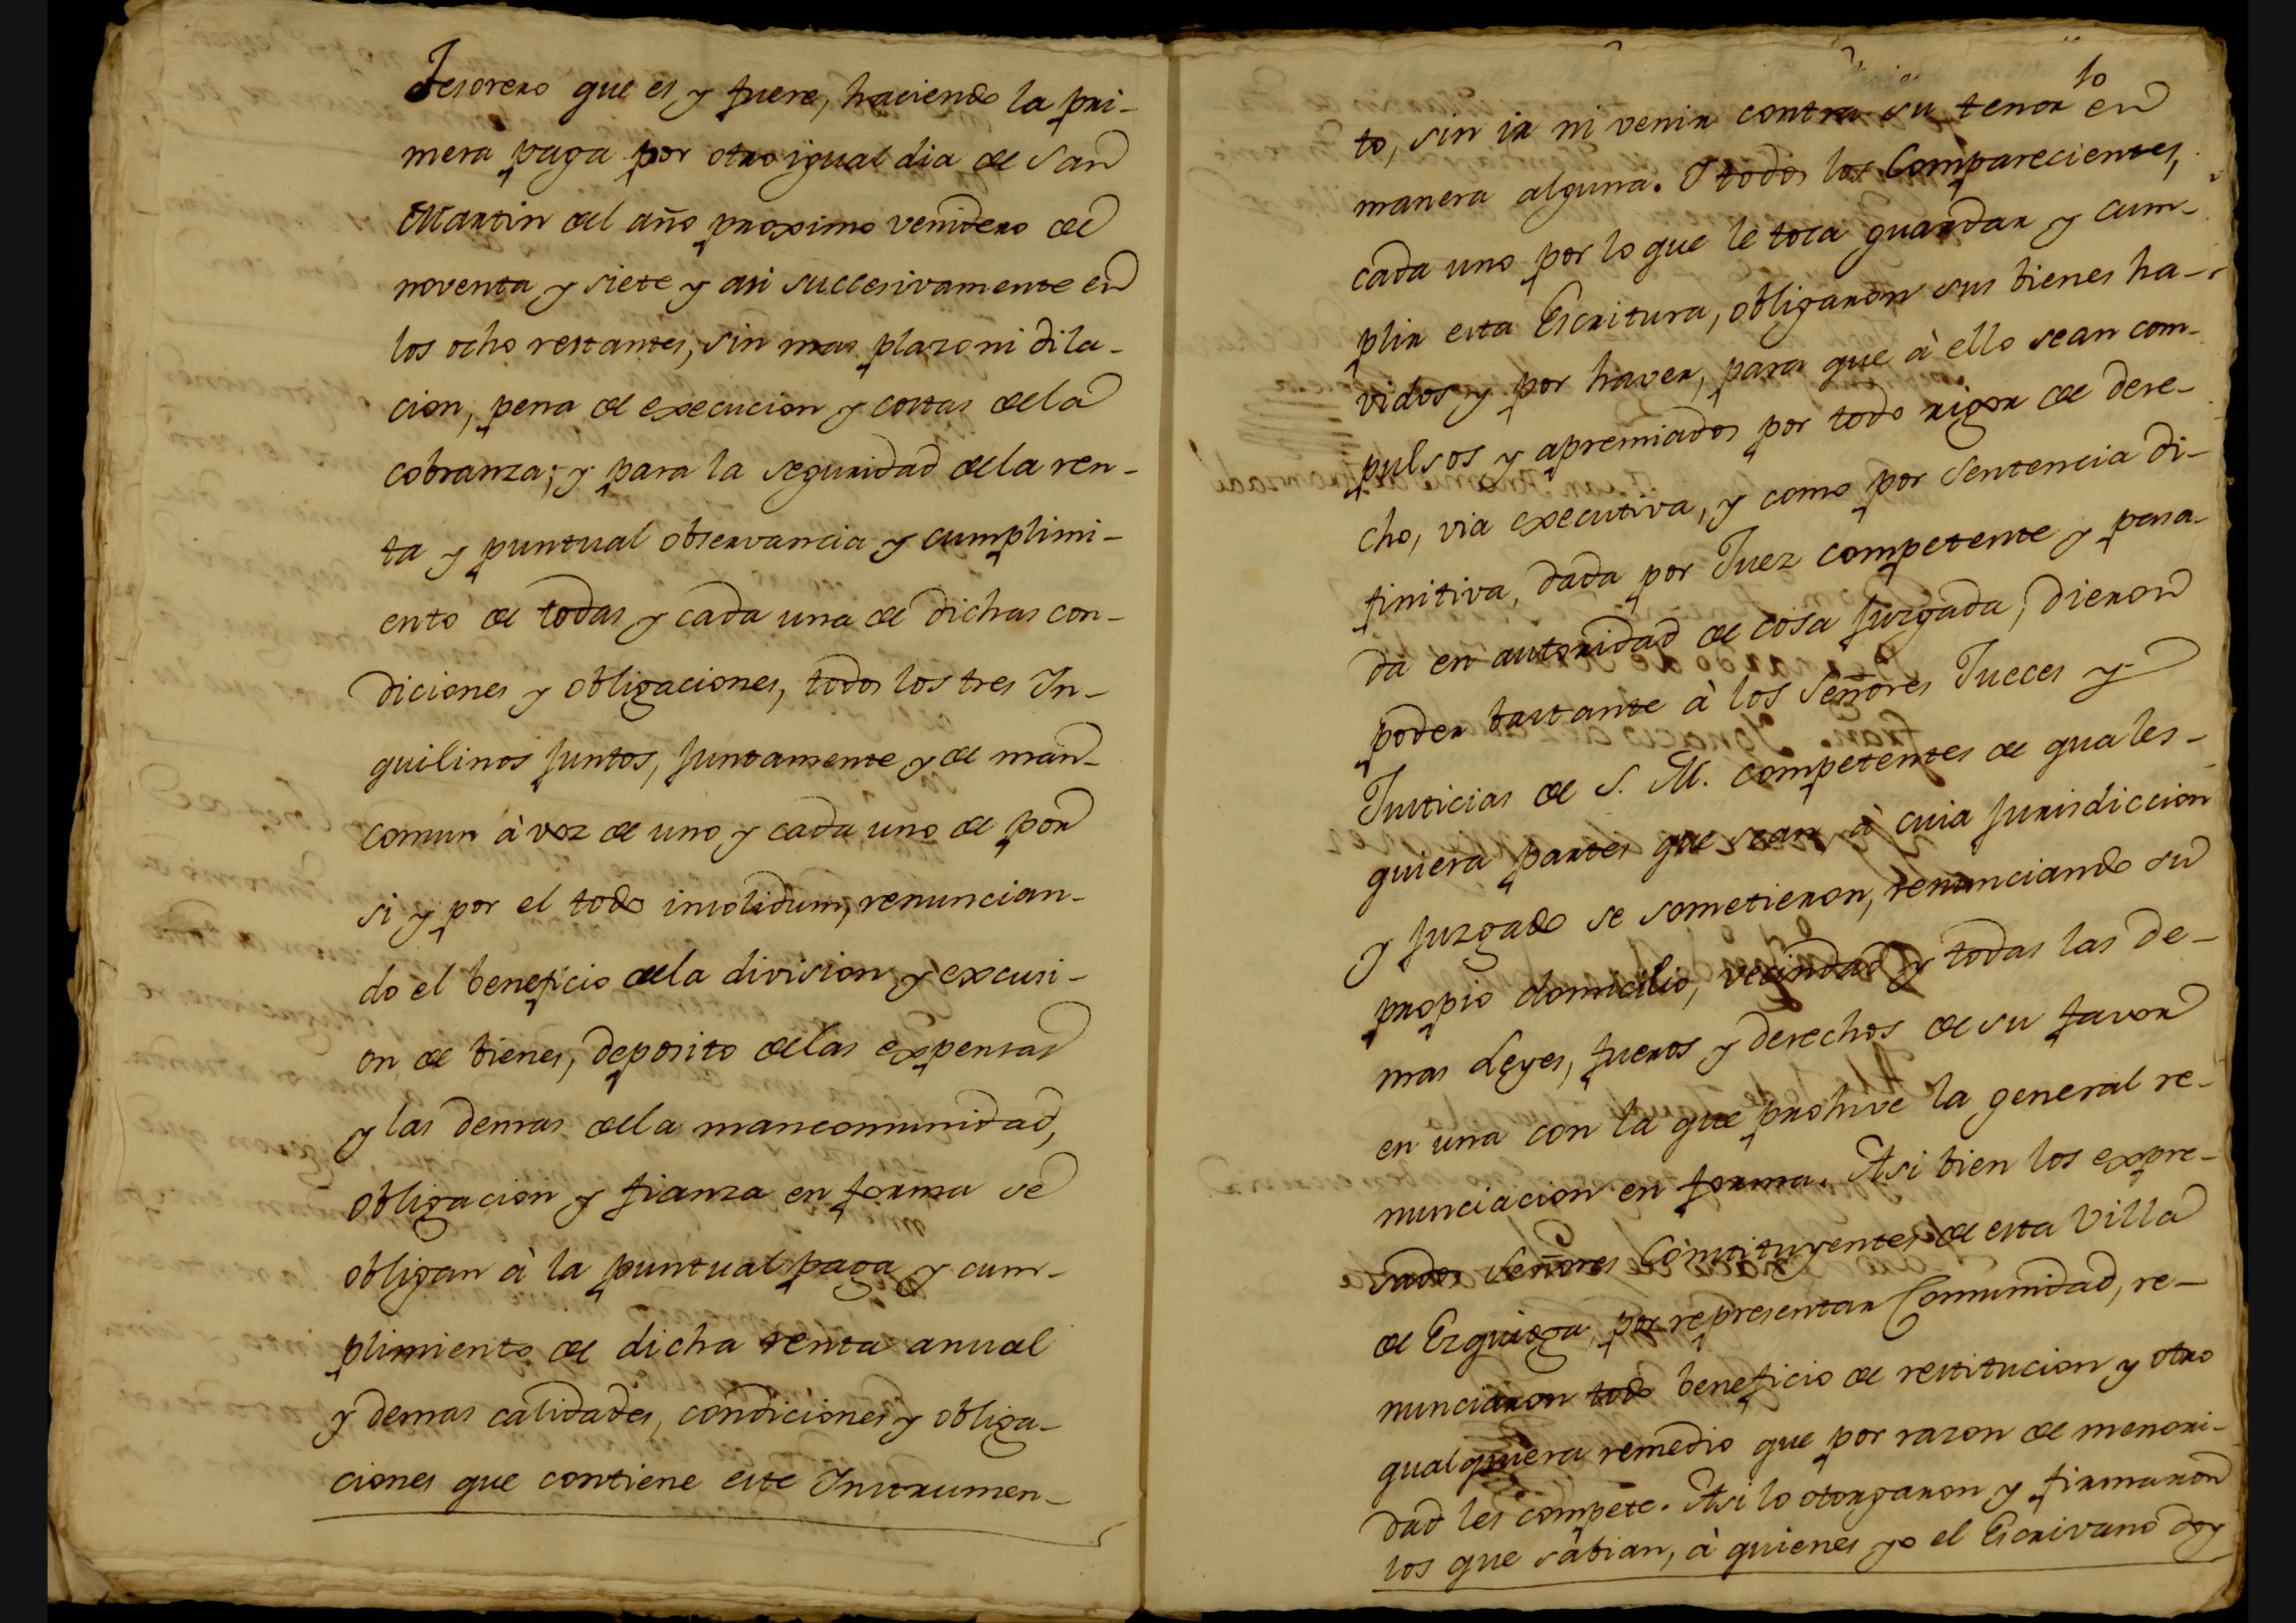 Tesorero que es y fuere, haciendo la pri-
mera paga por otro igual dia de San
Martin del año proximo venidero de
noventa y siete y asi succesivamente en
los ocho restantes, sin mas plazo ni dila-
cion, pena de execucion y costas de la
cobranza; y para la seguridad de la ren-
ta y puntual observancia y cumplimi-
ento de todas y cada una de dichas con-
diciones y obligaciones, todos los tres In-
quilinos juntos, juntamente y de man-
comun à voz de uno y cada uno de por
si y por el todo insolidum, renuncian-
do el beneficio de la division y excusi-
on de bienes, deposito de las expensas
y las demas de la mancomunidad,
obligacion y fianza en forma se
obligan à la puntual paga y cum-
plimiento de dicha renta anual
y demas calidades, condiciones y obliga-
ciones que contiene este Instrumen-
to
to, sin ir ni venir contra su tenor en
manera alguna. I todos los Comparecientes,
cada uno por lo que le toca guardar y cum-
plir esta Escritura, obligaron sus bienes ha-
vidos y por haver, para que à ello sean com-
pulsos y apremiados por todo rigor de dere-
cho, via executiva, y como por Sentencia di-
finitiva, dada por Juez competente y pasa-
da en autoridad de cosa juzgada, dieron
poder bastante à los Señores Jueces y
Justicias de S. M. competentes de quales-
quiera partes que sean, à cuia jurisdiccion
y juzgado se sometieron, renunciando su
propio domicilio, vecindad y todas las de-
mas Leyes, fueros y derechos de su favor
en una con la que prohive la general re-
nunciacion en forma. Asi bien los expre-
sados Señores Constituyentes de esta Villa
de Ezquioga, por representar Comunidad, re-
nunciaron todo beneficio de restitucion y otro
qualquiera remedio que por razon de menori-
dad les compete. Asi lo otorgaron y firmaron
los que sabian, à quienes yo el Escrivano doy